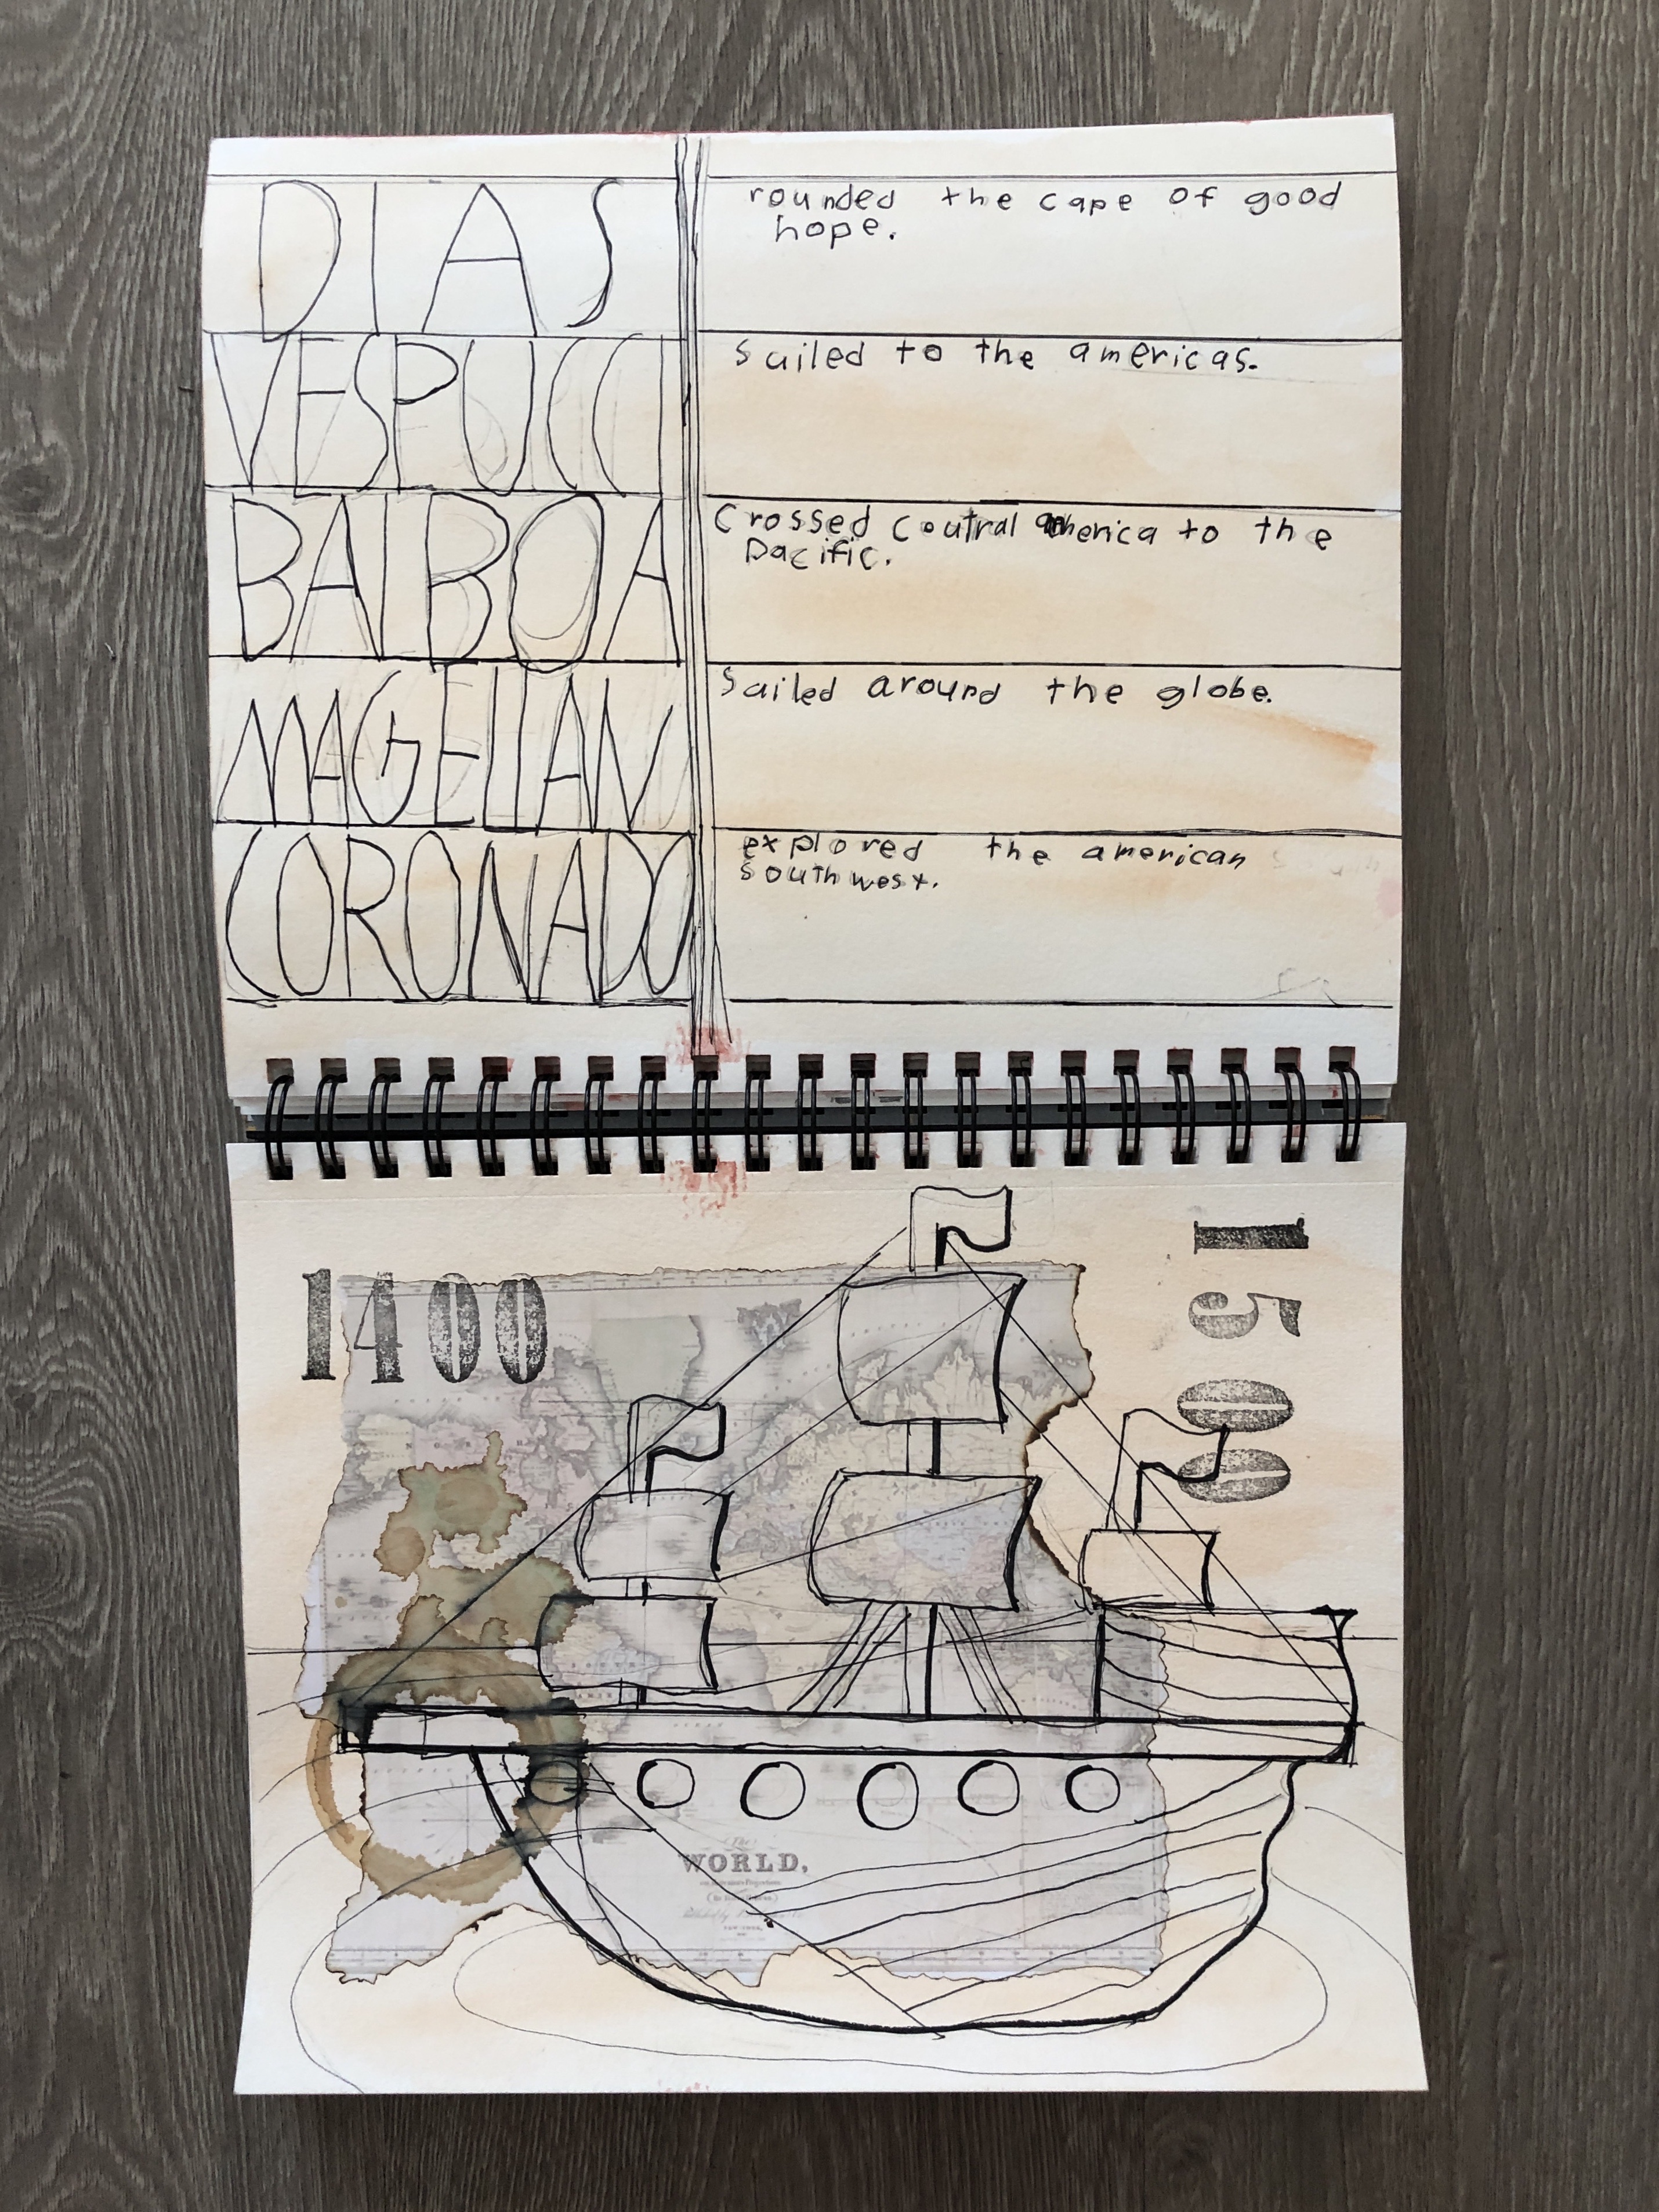 DIAS
rounded the cape of good
hope.
VESPUCCI
sailed to the americas.
BALBOA
Crossed Central america to the
Pacific.
MAGELLAN
Sailed around the globe.
CORONADO
explored the american
southwest.
1400
1500
(The)
WORLD,